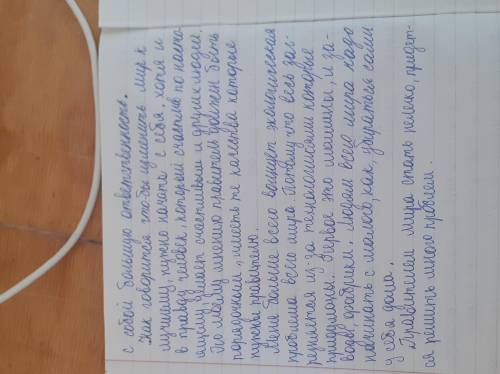 с собой большую ответственность.
Как говорится что-бы изменить мир к
лучшему, нужно начать с себя, хотя и
в правду человек, который счастлив по насто
ящему, делает счастливыми и других людей.
По моему мнению правитель должен быть
порядочным, иметь те качества которые
нужны правителю.
Меня больше всего волнует экологическая
проблема всего мира. Потому что весь заг-
рязняется из-за технологиями которые
придуманы. Первое это машины, и за-
воды, фабрики. Людям всего мира надо
начинать с малого, как, убираться сами
у себя дома.
Правителем мира стать нелегко, придет-
ся решить много проблем.